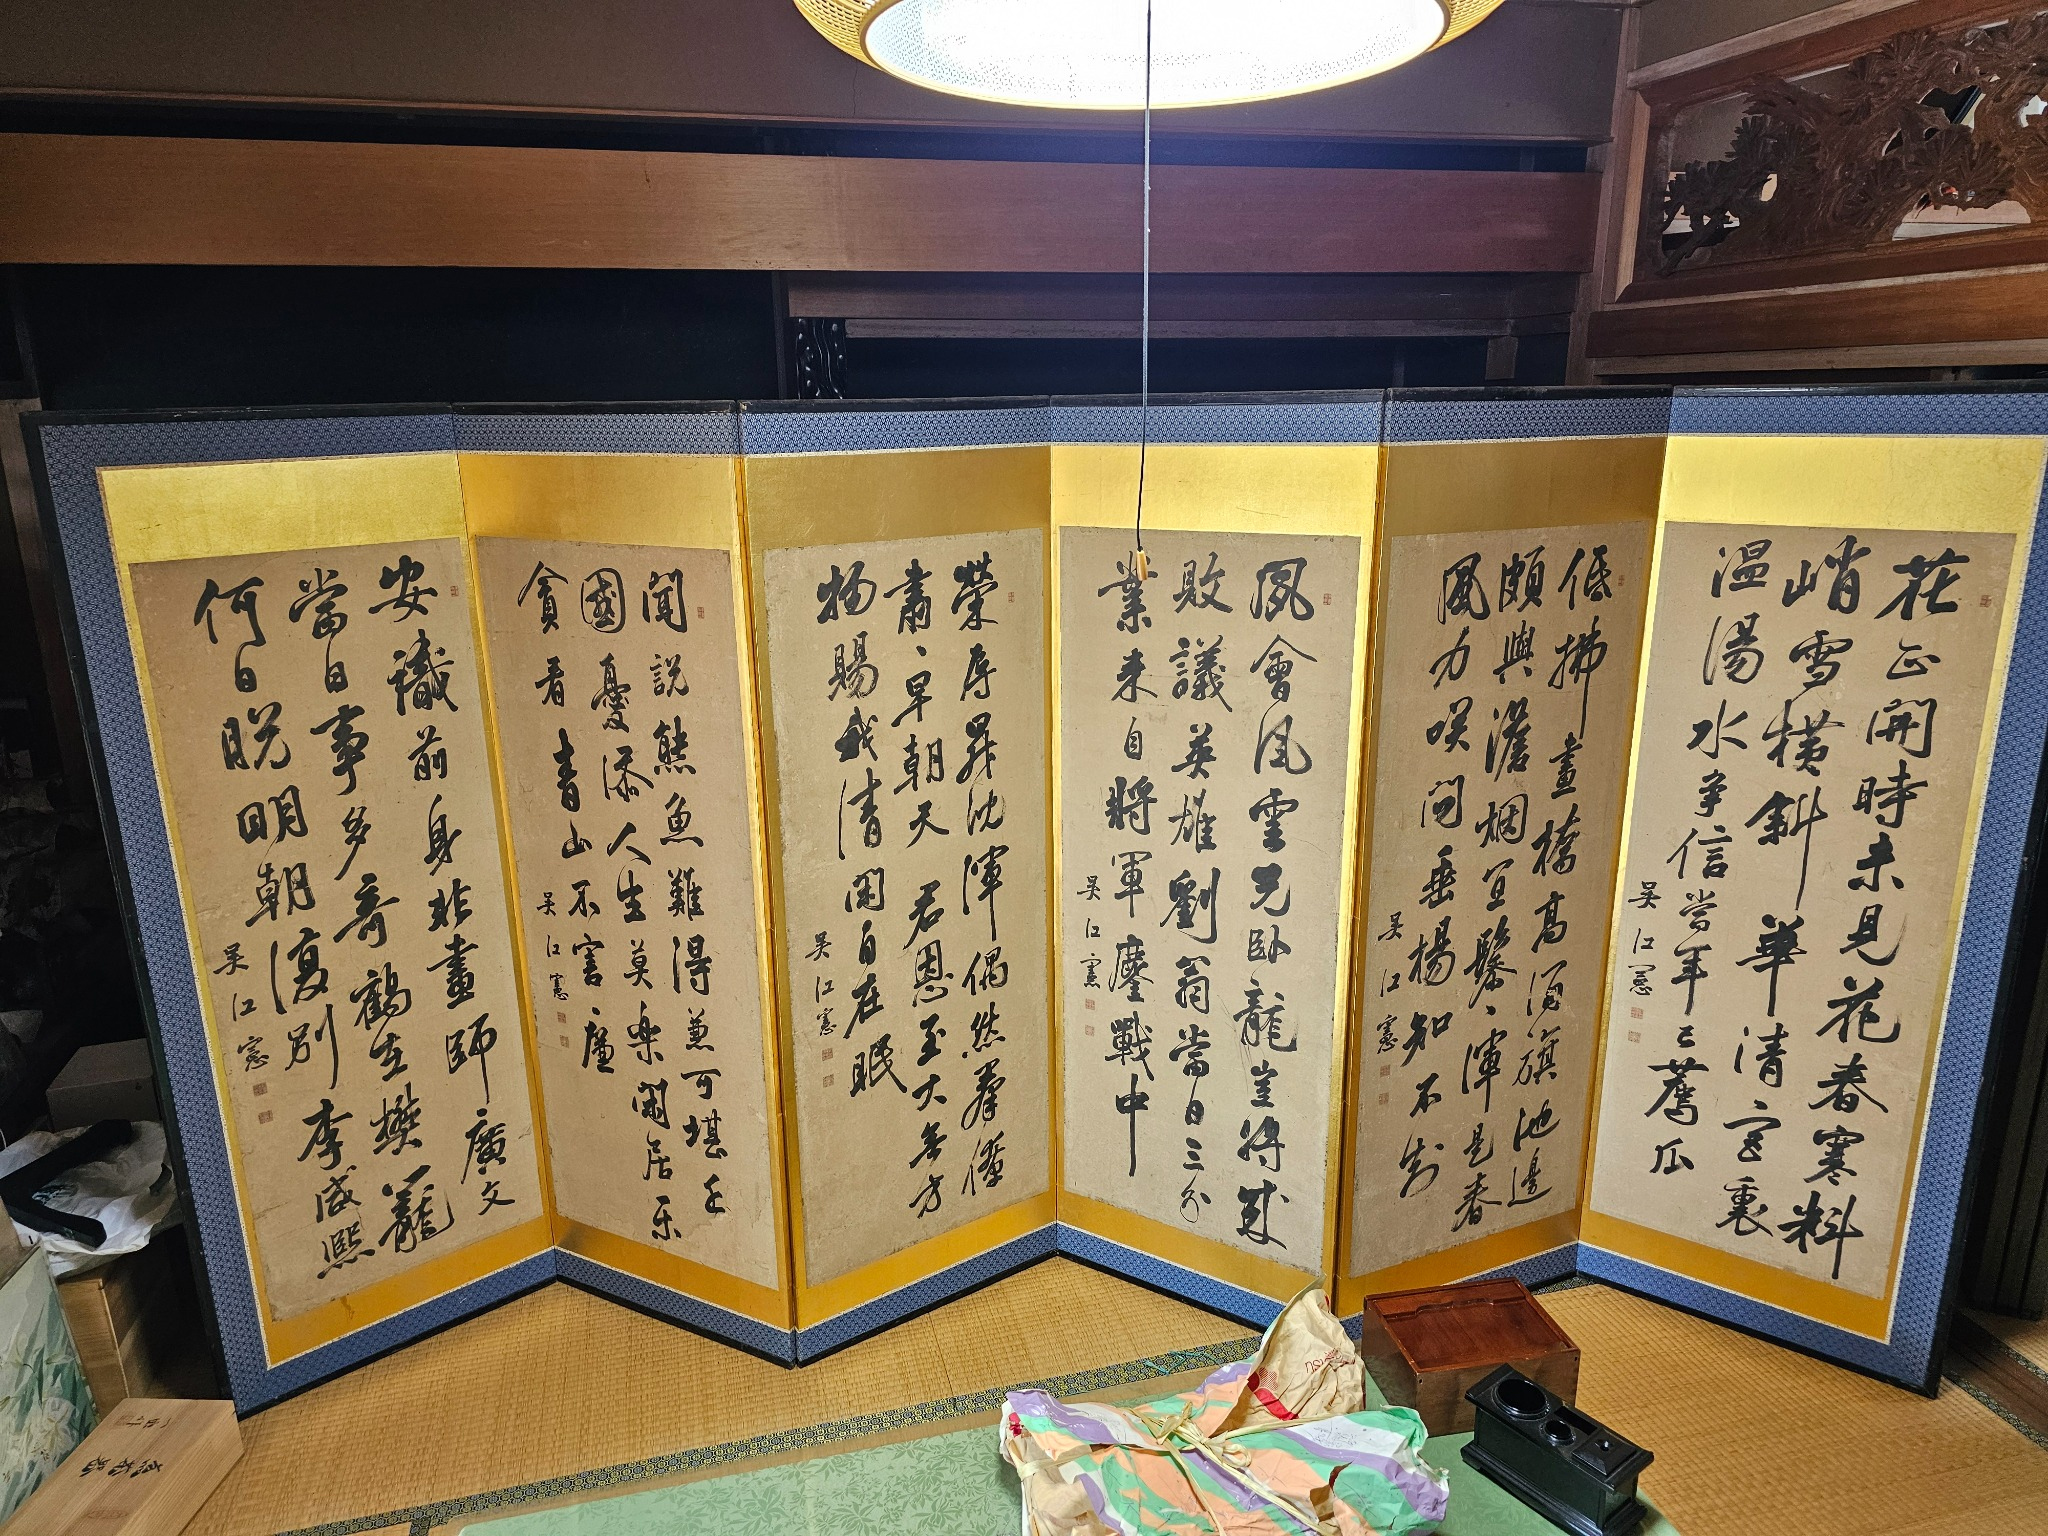 花正開時未見花春寒料
峭雪横斜華清宮裏
温湯水争信當年已薦瓜
呉江憲
低拂畫橋高酒旗池邊
頗與澹烟宜鬖〻渾是春
風力咲問垂楊知不知
呉江憲
風會風雲元臥龍豈将成
敗議英雄劉翁當日三分
業来自将軍鏖戰中
呉江憲
榮辱昇沈渾偶然羣僚
肅〻早朝天君恩至大無方
物賜我清閑自在眠
呉江憲
聞説熊魚難得兼可堪
國憂添人生莫楽閑居楽
貪看青山不害廉
呉江憲
安識前身非畫師廣文
當日事多奇鶴在樊籠
何日脱明朝復別李咸熙
呉江憲